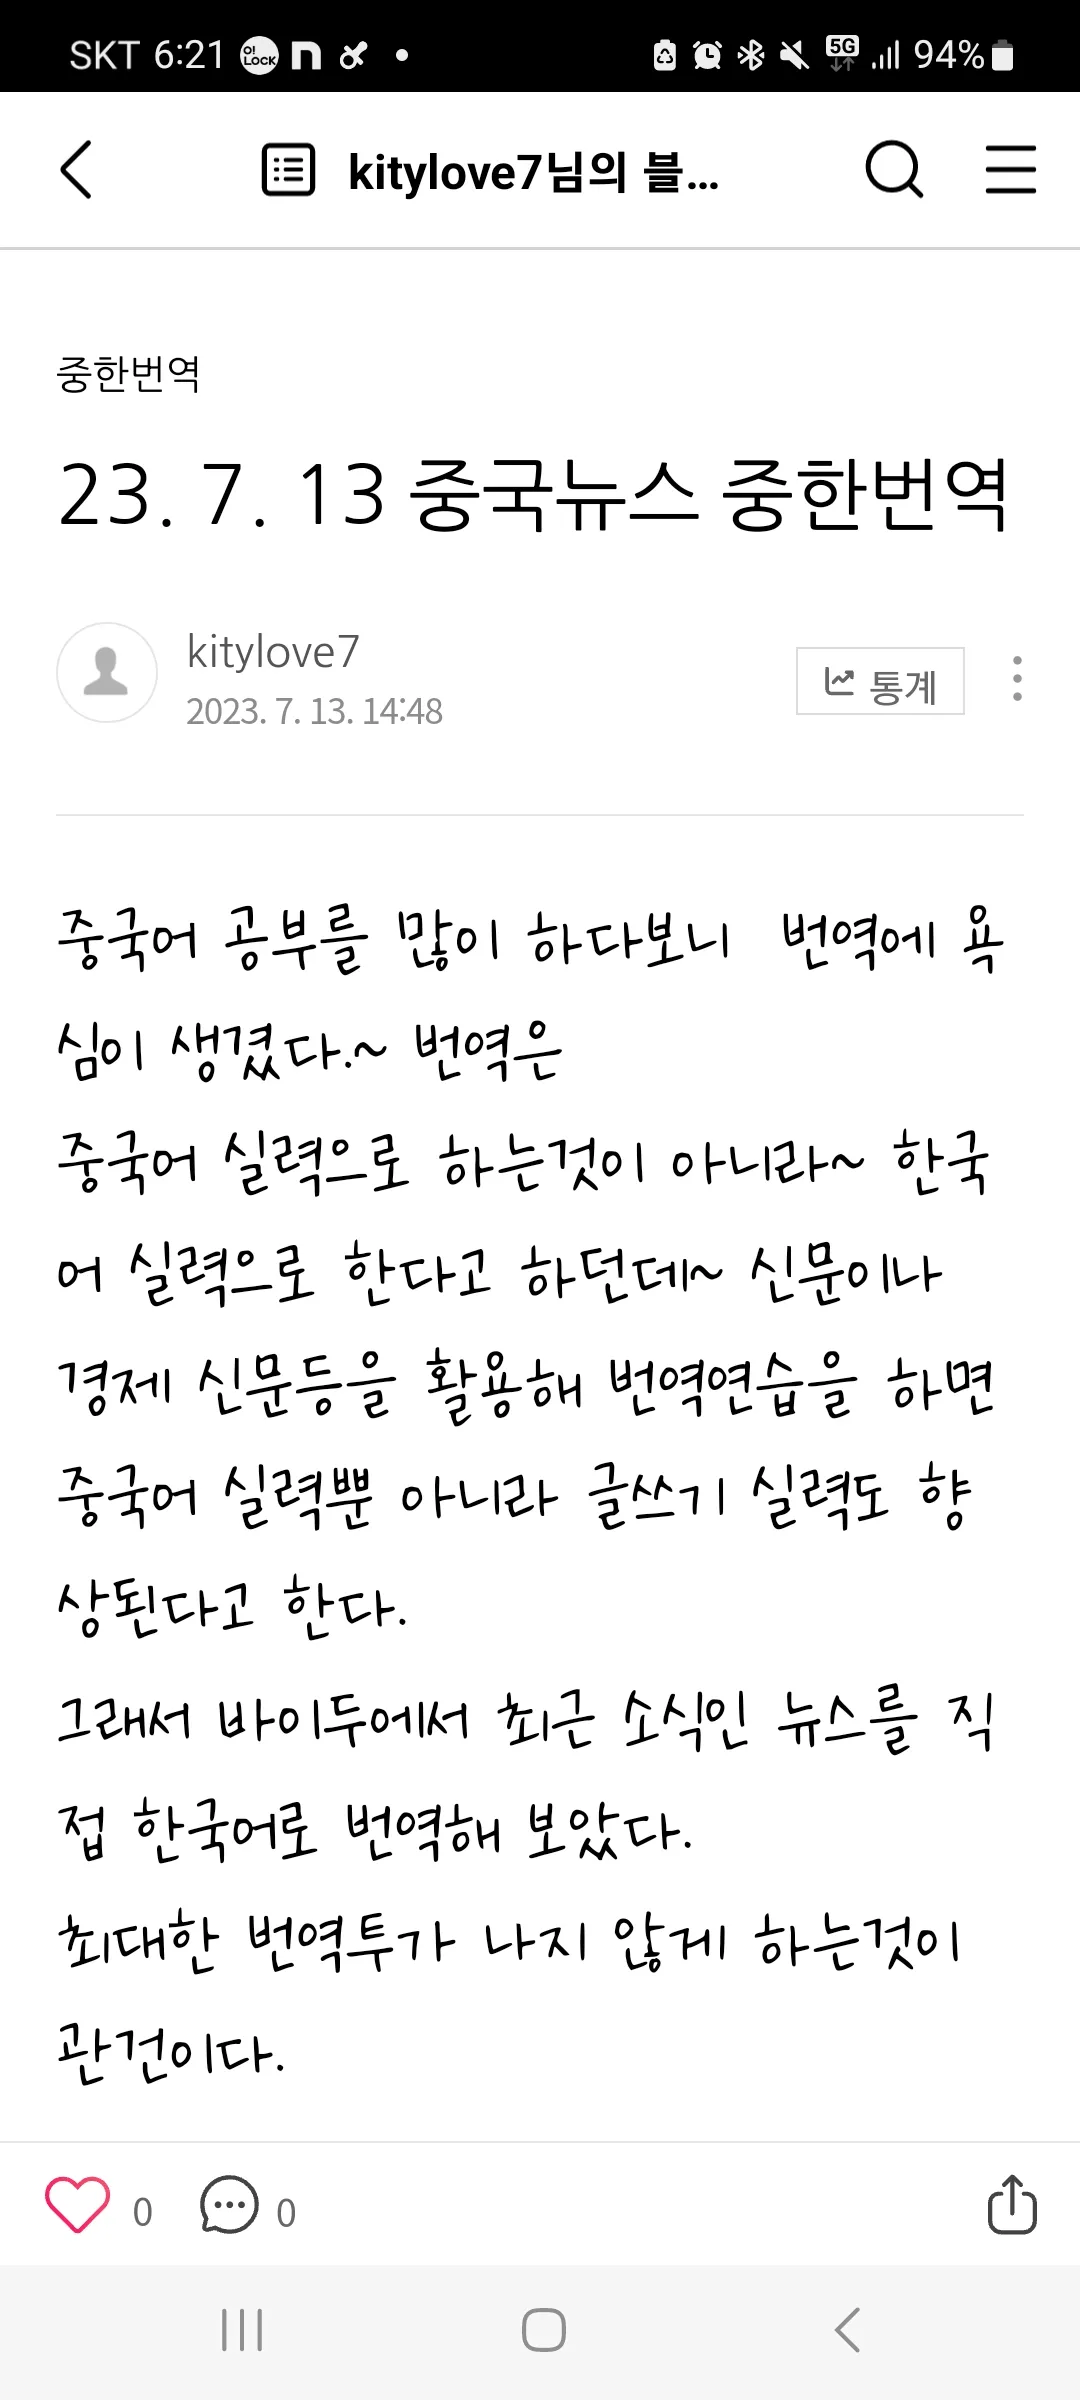 SKT 6:21 O! LOCK n 5G 94%
kitylove7님의 블...
중한번역
23. 7. 13 중국뉴스 중한번역
kitylove7
2023. 7. 13. 14:48
통계
중국어 공부를 많이 하다보니 번역에 욕
심이 생겼다.~ 번역은
중국어 실력으로 하는것이 아니라~ 한국
어 실력으로 한다고 하던데~ 신문이나
경제 신문등을 활용해 번역연습을 하면
중국어 실력뿐 아니라 글쓰기 실력도 향
상된다고 한다.
그래서 바이두에서 최근 소식인 뉴스를 직
접 한국어로 번역해 보았다.
최대한 번역투가 나지 않게 하는것이
관건이다.
0 0